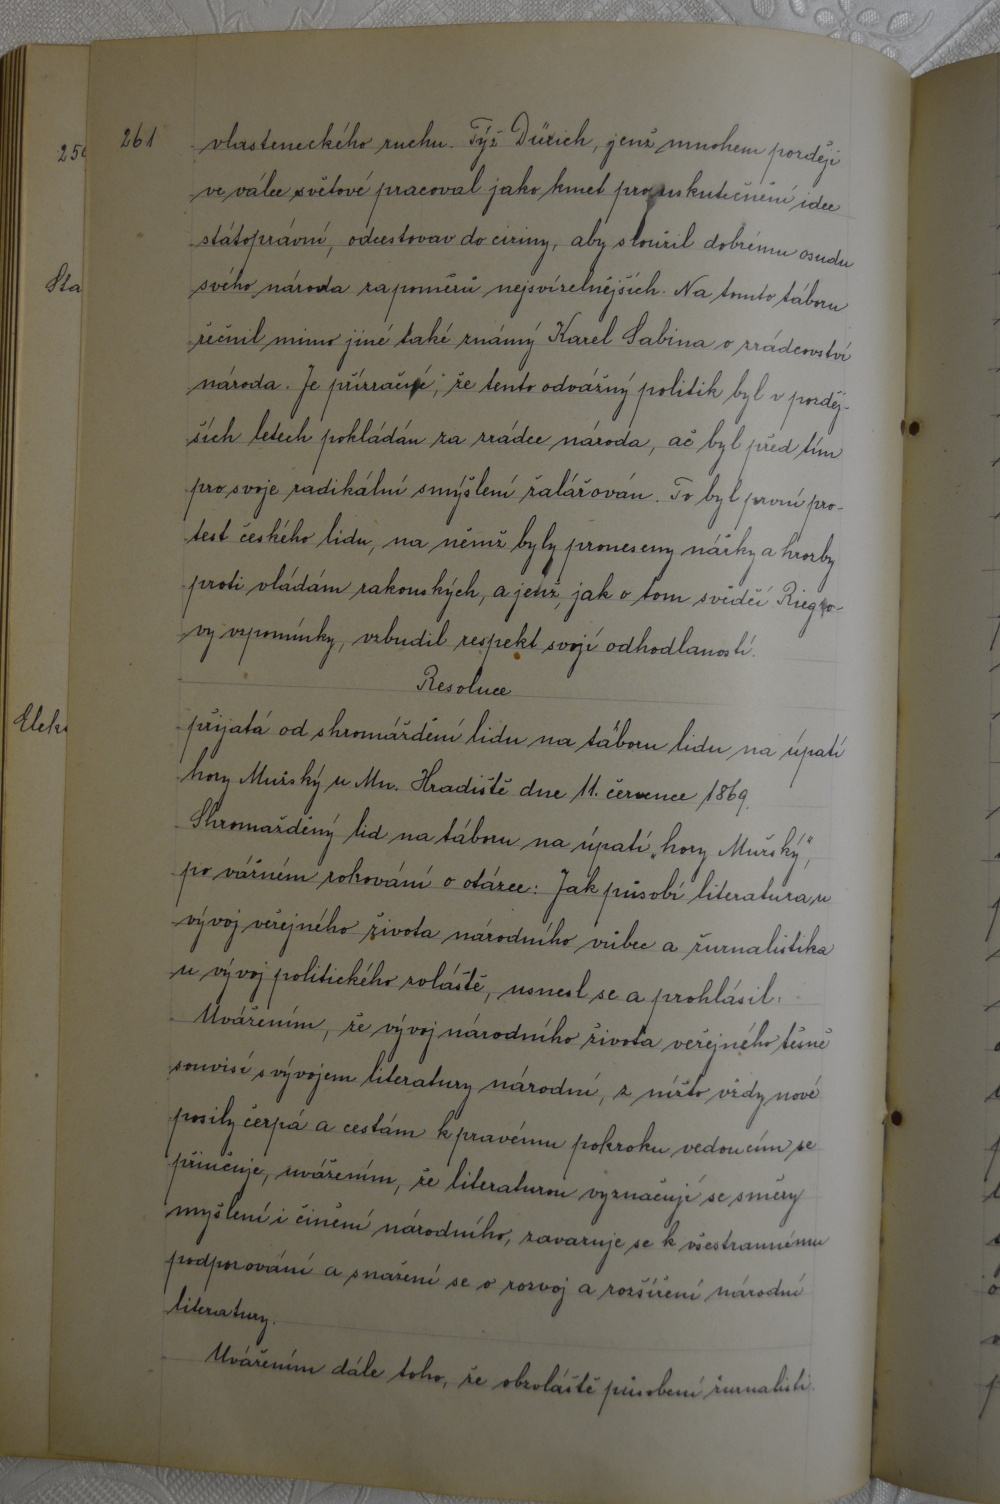 261
vlasteneckého ruchu. Týž Dürich, jenž mnohem později
ve válce světové pracoval jako kmet pro uskutečnění idee
státoprávní, odcestovav do ciziny, aby sloužil dobrému osudu
svého národa za poměrů nejsvízelnějších. Na tomto táboru
řečnil mimo jiné také známý Karel Sabina o zrádcovství
národa. Je přízračné, že tento odvážný politik byl v pozděj-
ších letech pokládán za zrádce národa, ač byl před tím
pro svoje radikální smýšlení žalářován. To byl první pro-
test českého lidu, na němž byly proneseny nářky a hrozby
proti vládám rakouských, a jenž, jak o tom svědčí Riegro-
vy vzpomínky, vzbudil respekt svojí odhodlaností.
Resoluce
přijatá od shromáždění lidu na táboru lidu na úpatí
hory Mužský u Mn. Hradiště dne 11. července 1869.
Shromážděný lid na táboru na úpatí „hory Mužský“,
po vážném rokování o otázce: Jak působí literatura u
vývoj veřejného života národního vůbec a žurnalistika
u vývoj politického zvláště, usnesl se a prohlásil:
Uvážením, že vývoj národního života veřejného těsně
souvisí s vývojem literatury národní, z nížto vždy nové
posily čerpá a cestám k pravému pokroku vedoucím se
přiučuje, uvážením, že literaturou vyznačují se směry
myšlení i činění národního, zavazuje se k všestrannému
podporování a snažení se o rozvoj a rozšíření národní
literatury.
Uvážením dále toho, že obzvláště působení žurnalisti-
256
Sta
Elek